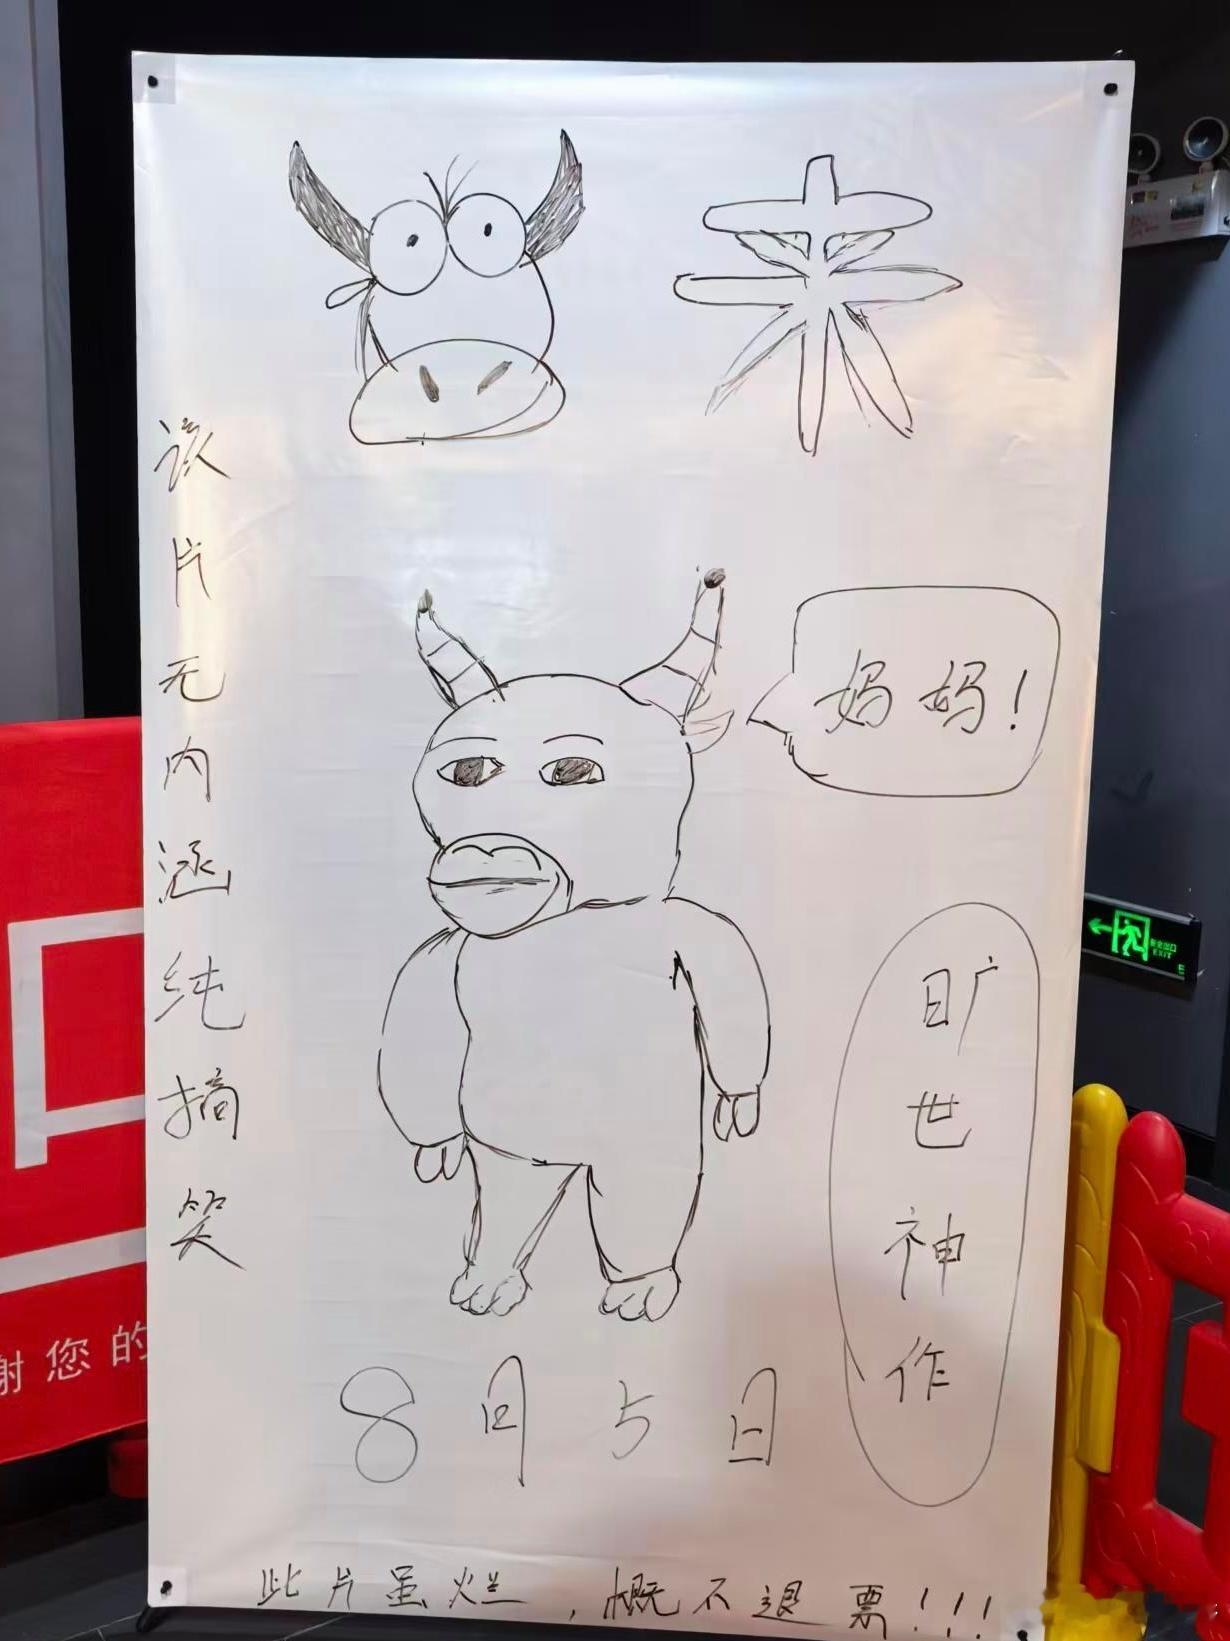 来
该片无内涵纯搞笑
妈妈！
旷世神作
8月5日
此片虽烂，概不退票！！！
谢您的
安全出口
EXIT